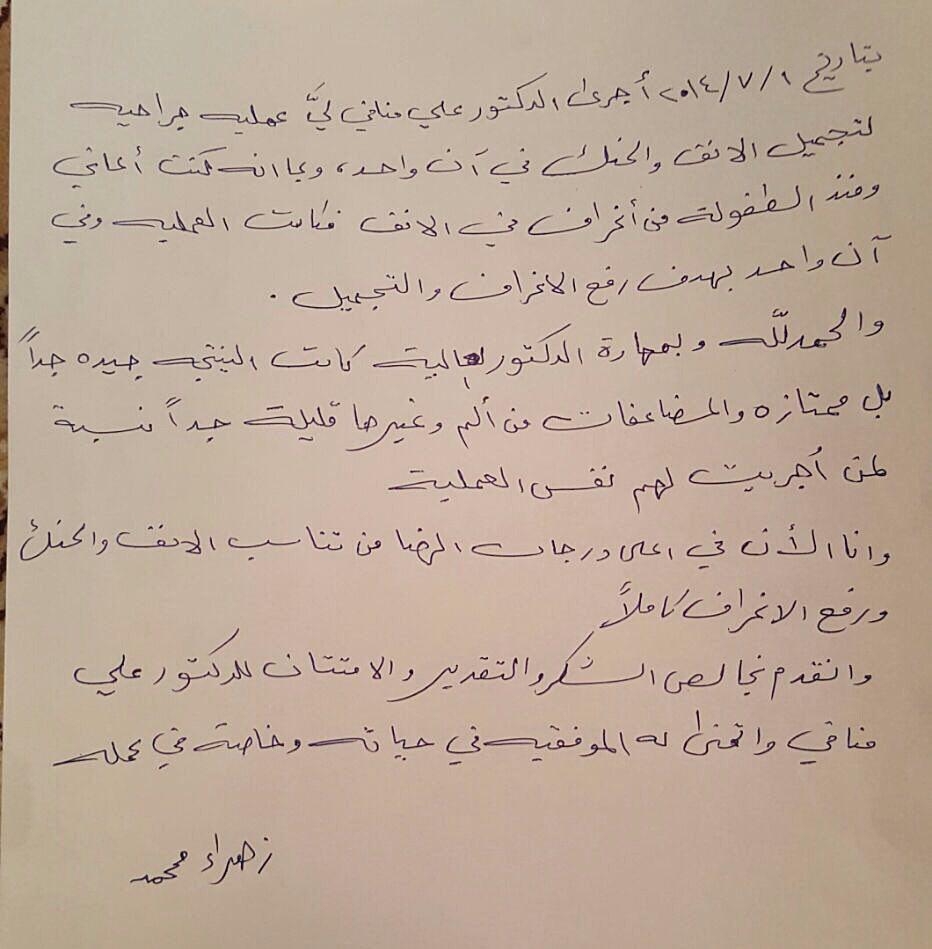 بتاريخ ٢٠١٤/٧/١ أجرى الدكتور علي منافي ليَّ عمليه جراحيه
لتجميل الانف والحنك في آن واحد، وبما انه كنت أعاني
ومنذ الطفولة من أنحراف في الانف فكانت العمليه وفي
آن واحد بهدف رفع الانحراف والتجميل .
والحمدللّه وبمهارة الدكتور العالية كانت النتيجه جيده جداً
بل ممتازه والمضاعفات من ألم وغيرها قليلة جداً نسبة
لمن أُجريت لهم نفس العملية
وانا الأن في اعلى درجات الرضا من تناسب الانف والحنك
ورفع الانحراف كاملاً
واتقدم بخالص الشكر والتقدير والامتنان للدكتور علي
منافي واتمنى له الموفقيه في حياته وخاصة في عمله
زهراء محمد